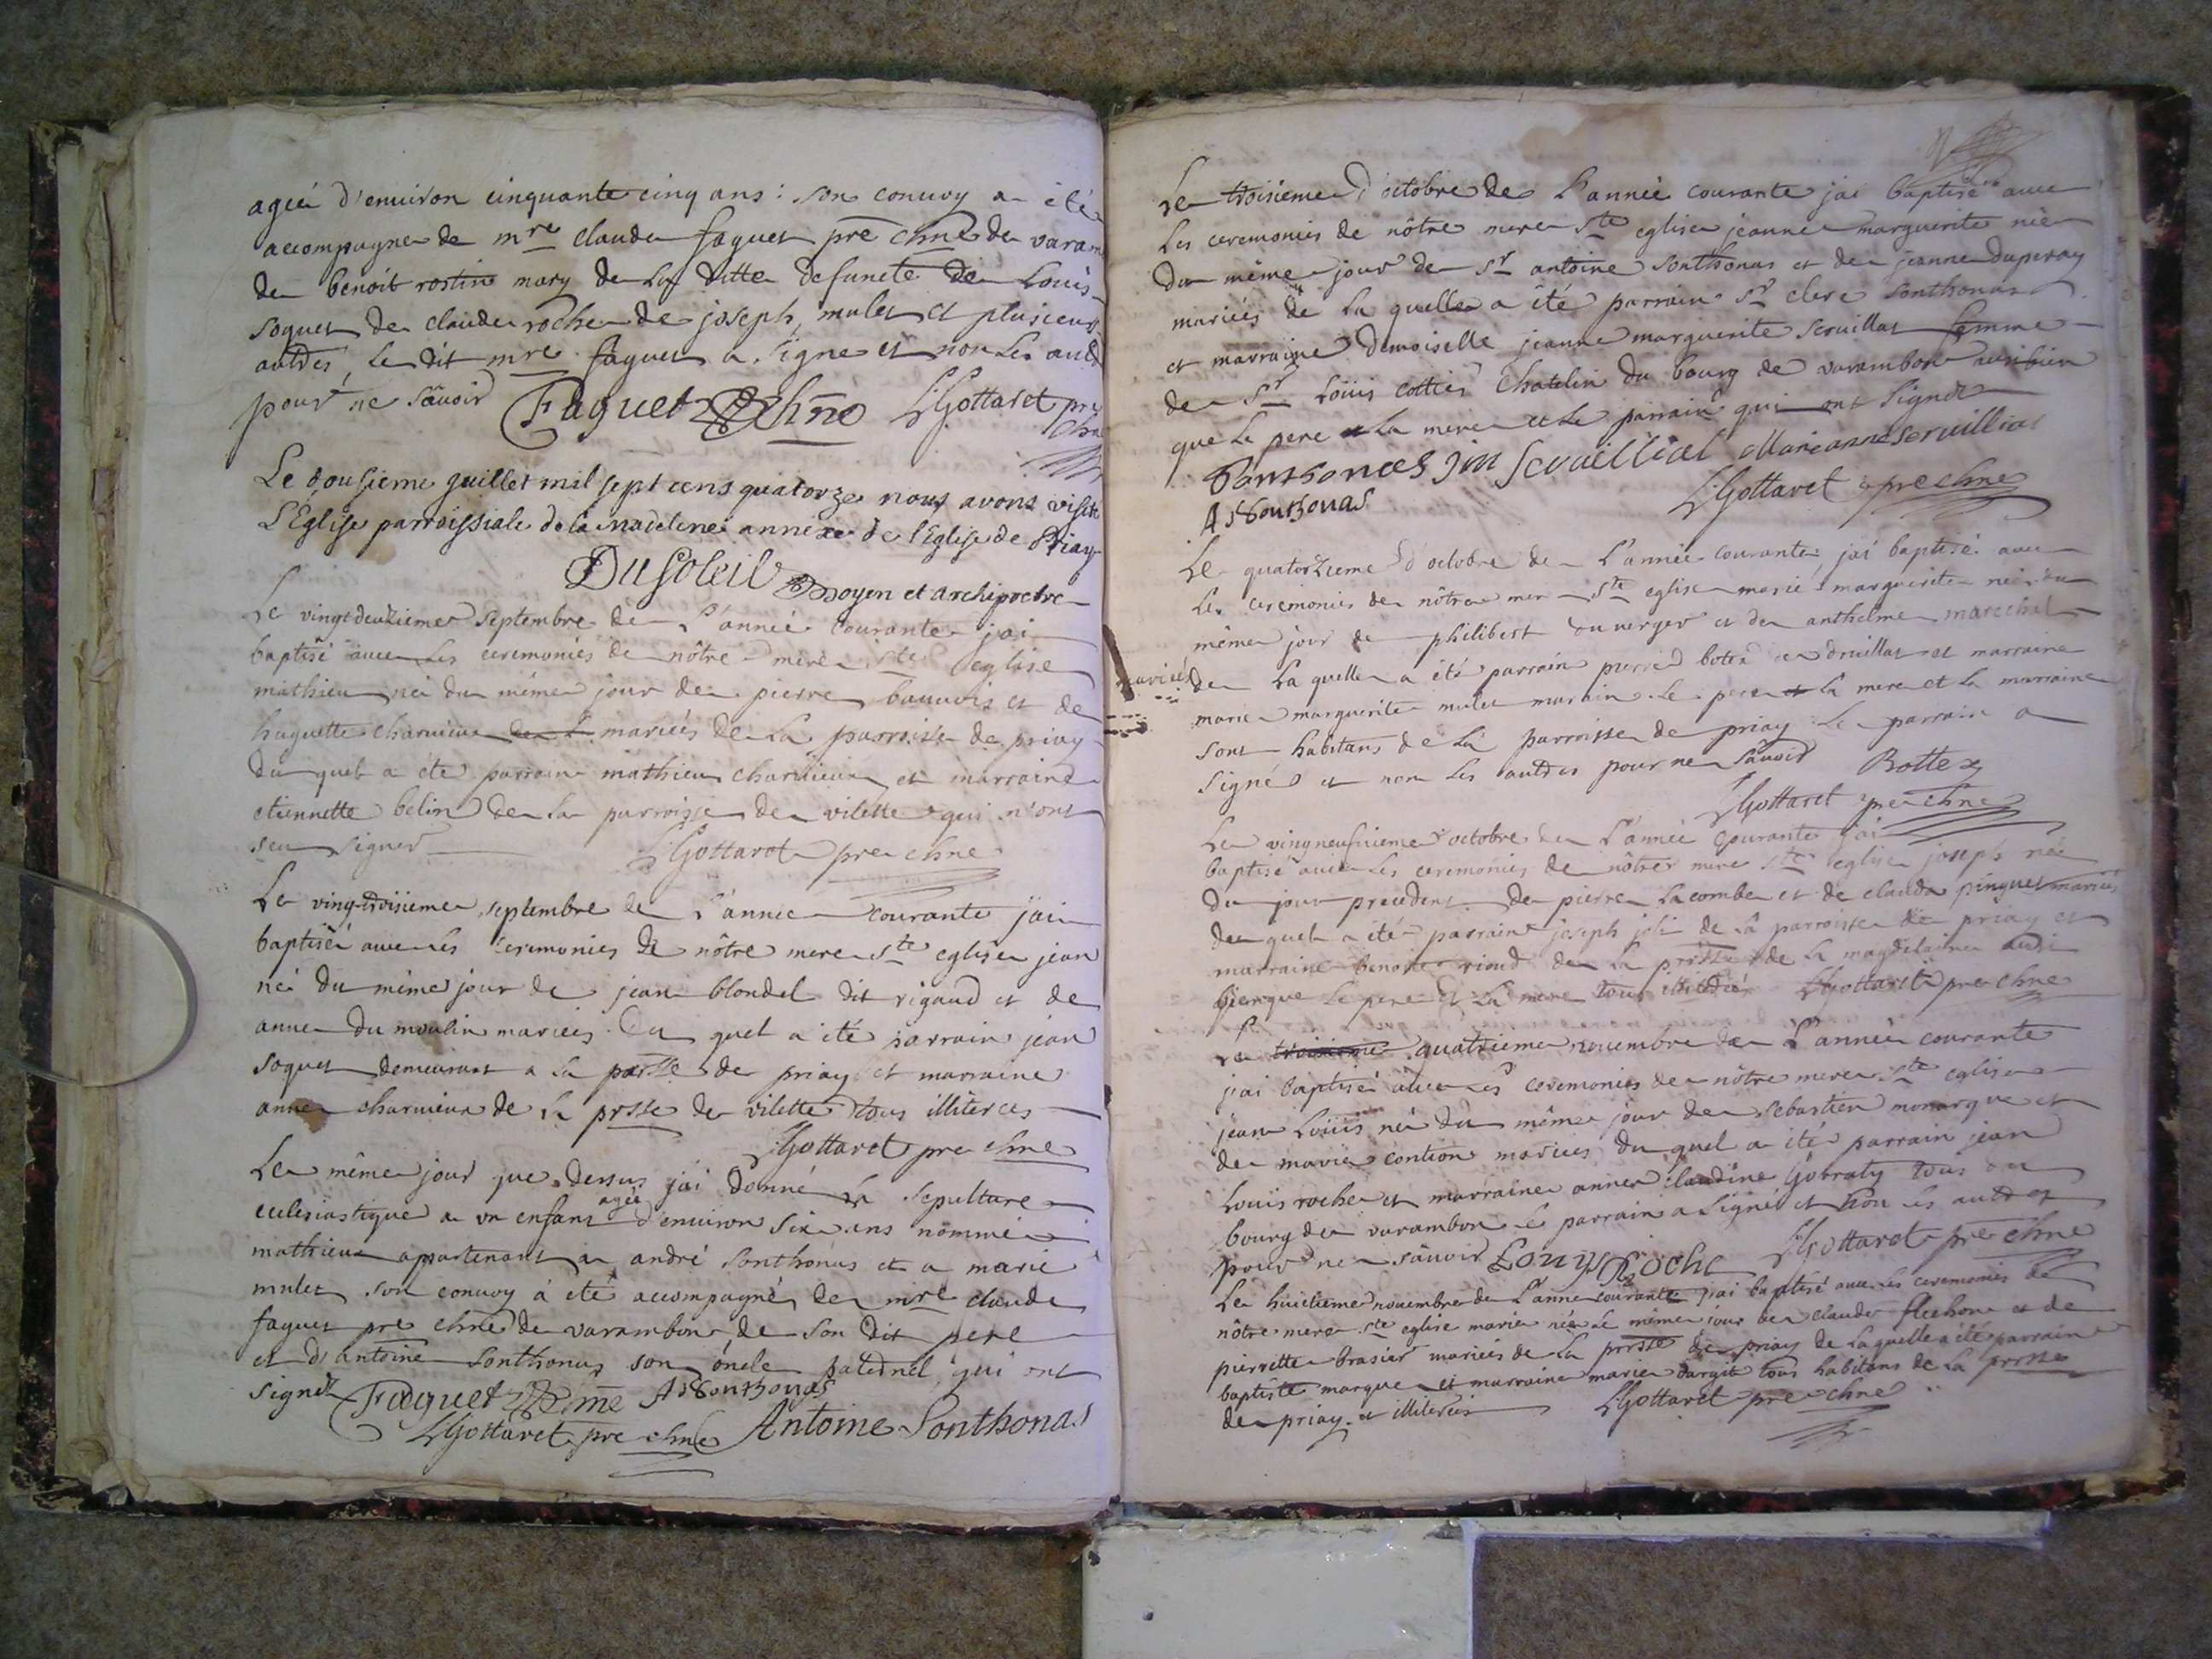 ageé d'enuiron cinquante cinq ans : son conuoy a eté
accompagné de mre claude faguet pre chne de varam
de benoit rostin mary de la ditte defuncte de Louis
soquet de claude roche de joseph mulet et plusieurs
autres, le dit mre faguet a signe et non les autr
pour ne sàuoir Faguet p chne LGottaret pre
chne
Le dousieme juillet mil sept cens quatorze nous avons visité
L'Eglise parroissiale de la madelene annexe de l'Eglise de Priay
DuSoleil Doyen et archipretre
Le vingt deuxieme septembre de L'anneé courante jai
baptisé auec les ceremonies de nôtre mere ste eglise
mathieu né du méme jour de pierre bauuois et de
huguette charuieux mariés de La parroisse de priay
du quel a été parrain mathieu charuieux et marraine
etiennette belin de la parroisse de vilette qui n'ont
sçu signer LGottaret pre chne
Le vingtroisieme septembre de L'anneé courante j'ai
baptisé auec les ceremonies de nôtre mere ste eglise jean
né du méme jour de jean blondel dit rigaud et de
anne du moulin mariés. Du quel a été parrain jean
soquet demeurant a la parsse de priay et marraine
anne charuieux de la prsse de vilette tous illiterés
LGottaret pre chne
Le méme jour que dessus j'ai donné La sepulture
eclesiastique a un enfant ageé d'enuiron six ans nommé
mathieu appartenant a andré sonthonas et a marie
mulet son conuoy à eté accompagné de mre claude
faguet pre chne de varambon, de son dit pere
et d'antoine sonthonas son oncle paternel qui ont
signez Faguet p chne ASonthonas
LGottaret pre chne Antoine Sonthonas
Le troisieme d'octobre de L'anneé courante jai baptisé auec
Les ceremonies de nôtre mere ste eglise jeanne marguerite neé
du méme jour de sr antoine sonthonas et de jeanne duperay
mariés de la quelle a été parrain sr clere sonthonas
et marraine demoiselle jeanne marguerite seruillat femme
de sr Loüis cottier chatelin du bourg de varambon aussibien
que le pere la mere et le parrain qui ont signez
Sonthonas jm Seruilliat Marianne Seruilliat
ASonthonas LGottaret pre chne
Le quatorzieme d'octobre de L'anneé courante, jai baptisé auec
les ceremonies de nôtre mere ste eglise marie marguerite neé du
méme jour de philibert duuerger et de anthelme marechal
mariés de La quelle a été parrain pierre botex de druillat et marraine
marie marguerite mulet le pere la mere et la marraine
sont habitans de la parroisse de priay. Le parrain a
signé et non les autres pour ne sàuoir Bottex
LGottaret pre chne
Le vingneufuieme octobre de L'anneé courante jai
baptisé auec les ceremonies de nôtre mere ste eglise joseph né
du jour precedent de pierre Lacombe et de claude pinguet mariés
du quel a été parrain joseph joli de la parroisse de priay et
marraine benoite riond de la prsse de la magdelaine aussi
bienque le pere et la mere tous illiterés LGottaret pre chne
Le quatrieme nouembre de L'anneé courante
j'ai baptisé auec les ceremonies de nôtre mere ste eglise
jean Loüis né du méme jour de sebastien monarque et
de marie contion mariés du quel a été parrain jean
Louis roche et marraine anne claudine Gobraty tous du
bourg de varambon le parrain a signé et non les autres
pour ne sàuoir LouysRoche LGottaret pre chne
Le huictieme nouembre de L'anneé courante jai baptisé auec les ceremonies de
nôtre mere ste eglise marie neé Le méme jour de claude flechon et de
pierrette brasier mariés de la prsse de priay de laquelle a été parrain
baptiste marque et marraine marie tous habitans de la prsse
de priay et illiterés LGottaret pre chne